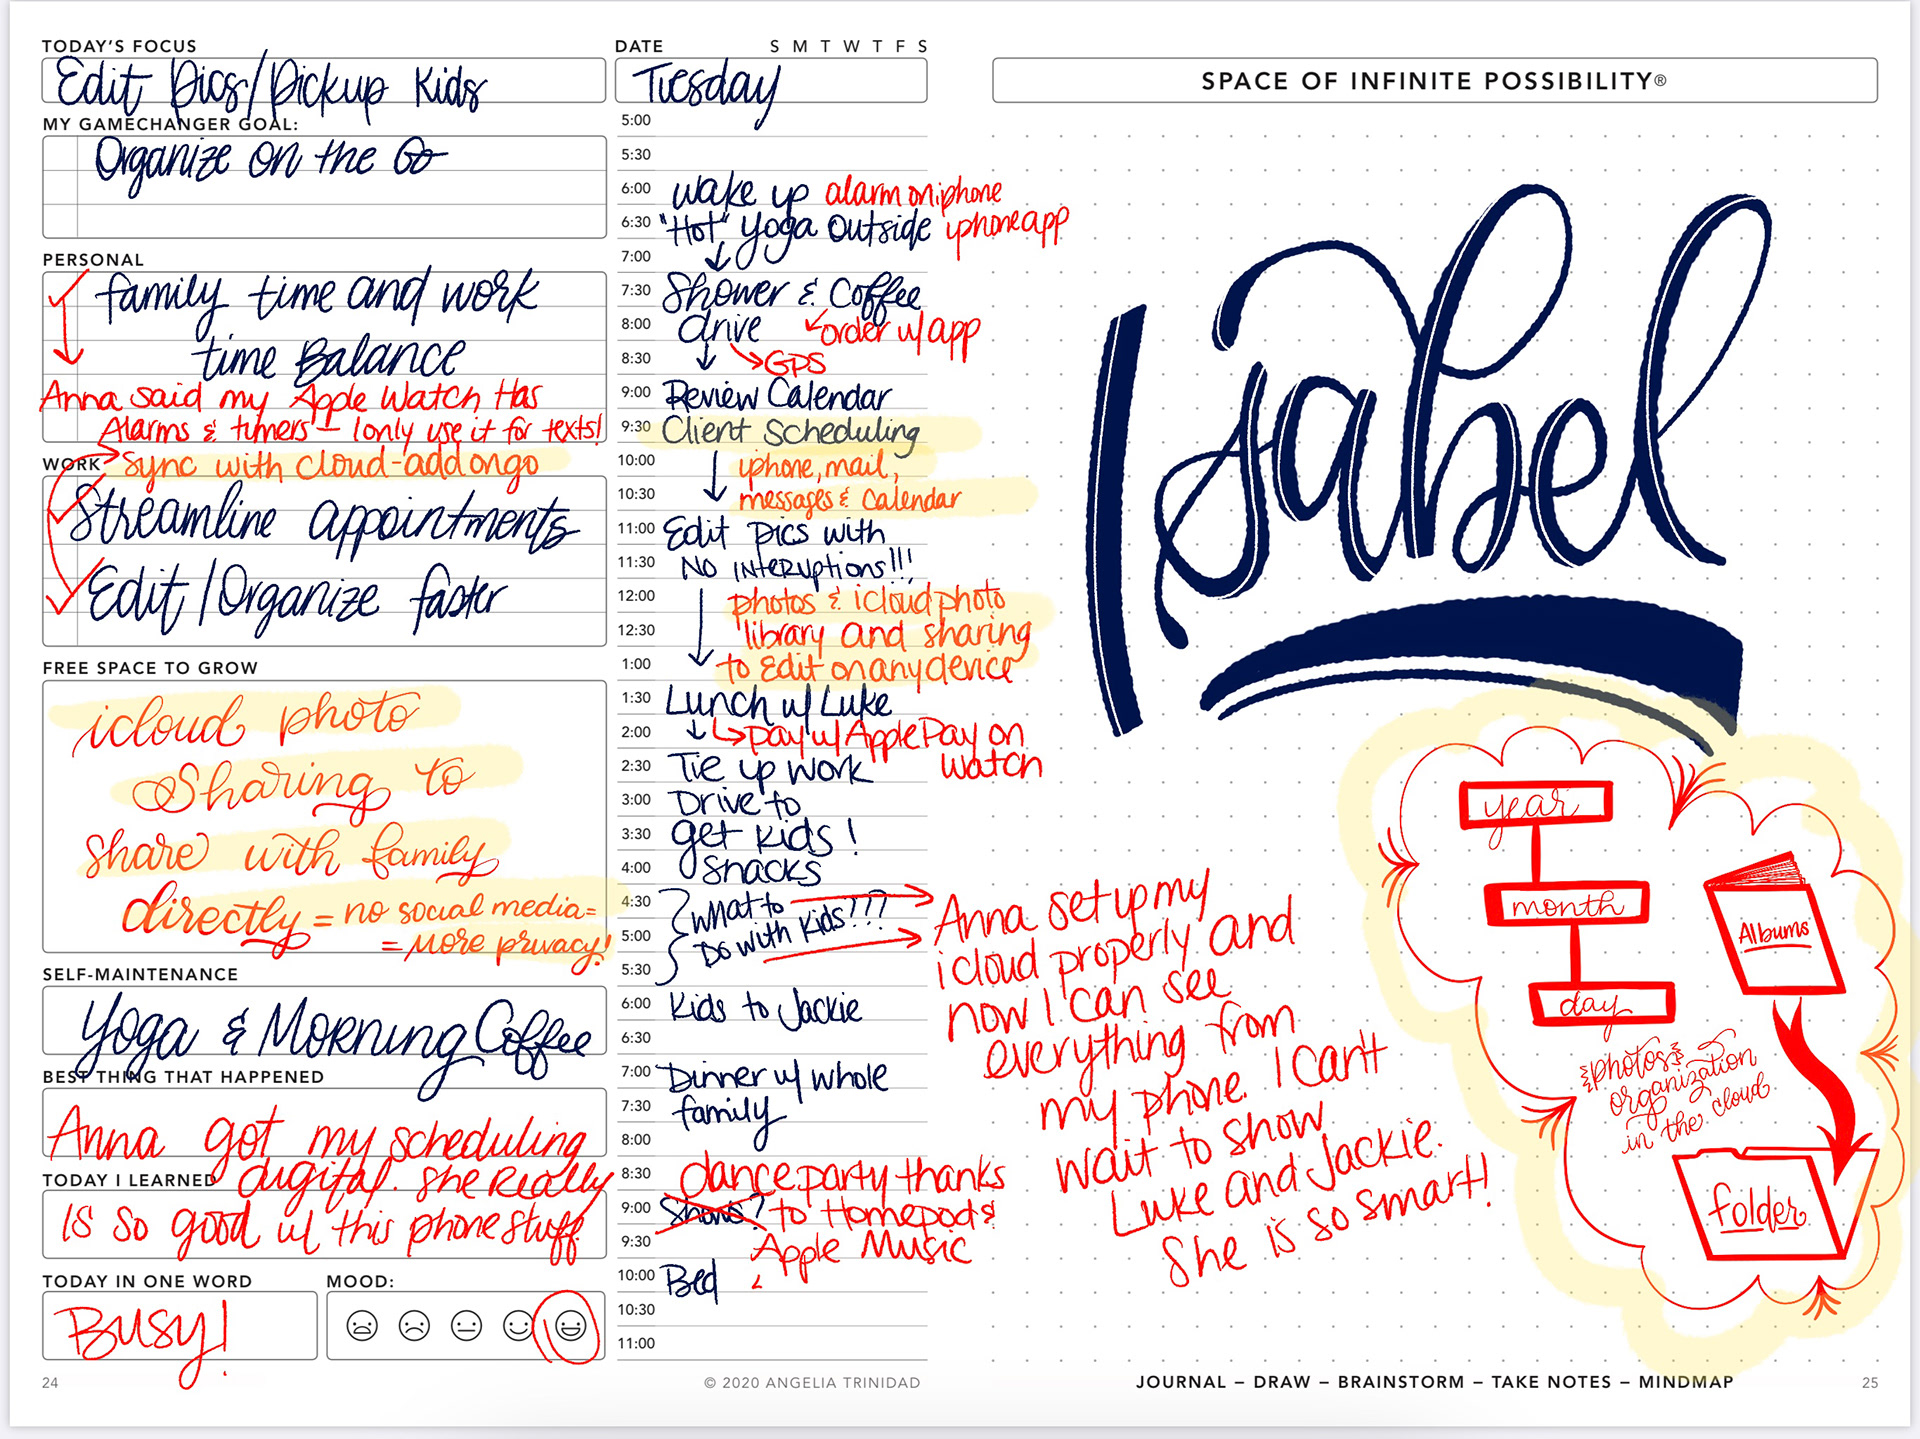 TODAY'S FOCUS
Edit Pics/Pickup Kids
MY GAMECHANGER GOAL:
Organize on the Go
PERSONAL
family time and work
time Balance
Anna said my Apple Watch Has
Alarms & timers – I only use it for texts!
Sync with cloud-add on go
WORK
Streamline appointments
Edit/Organize faster
FREE SPACE TO GROW
icloud photo
Sharing to
share with family
directly = no social media=
= More privacy!
SELF-MAINTENANCE
Yoga & Morning Coffee
BEST THING THAT HAPPENED
Anna got my scheduling
digital. She Really
TODAY I LEARNED
is so good w/ this phone stuff
TODAY IN ONE WORD
Busy!
MOOD:
24
DATE
S M T W T F S
Tuesday
5:00
5:30
6:00 wake up alarm on iphone
6:30 "Hot" Yoga Outside iphone app
7:00
7:30 Shower & Coffee
8:00 drive order w/ app
8:30 GPS
9:00 Review Calendar
9:30 Client Scheduling
10:00 iphone, mail,
10:30 messages & Calendar
11:00 Edit pics with
11:30 No interuptions!!!
12:00 photos & icloud photo
12:30 library and sharing
1:00 to Edit on any device
1:30 Lunch w/ Luke
2:00 pay w/ Apple Pay on
watch
2:30 Tie up work
3:00 Drive to
3:30 get kids!
4:00 snacks
4:30 What to
5:00 Do with kids???
5:30
6:00 Kids to Jackie
6:30
7:00 Dinner w/ whole
7:30 family
8:00
8:30 dance party thanks
9:00 Shows? to Homepods
9:30 Apple Music
10:00 Bed
10:30
11:00
© 2020 ANGELIA TRINIDAD
SPACE OF INFINITE POSSIBILITY®
Isabel
Anna set up my
icloud properly and
now I can see
everything from
my phone. I can't
wait to show
Luke and Jackie.
She is so smart!
year
month
day
Albums
photos
organization
in the cloud
folder
JOURNAL – DRAW – BRAINSTORM – TAKE NOTES – MINDMAP
25